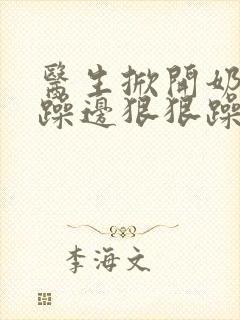 醫生掀開奶
躁邊狠狠躁
李海文